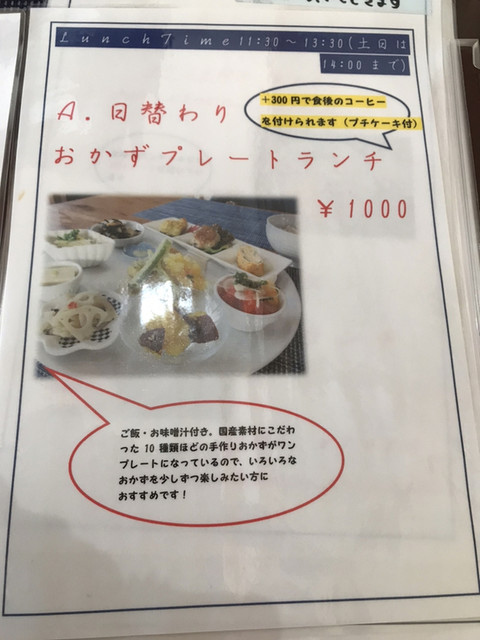 LunchTime11:30～13:30(土日は
14:00まで)
＋300円で食後のコーヒー
を付けられます（プチケーキ付）
A.日替わり
おかずプレートランチ
￥1000
ご飯・お味噌汁付き。国産素材にこだわ
った10種類ほどの手作りおかずがワン
プレートになっているので、いろいろな
おかずを少しずつ楽しみたい方に
おすすめです！